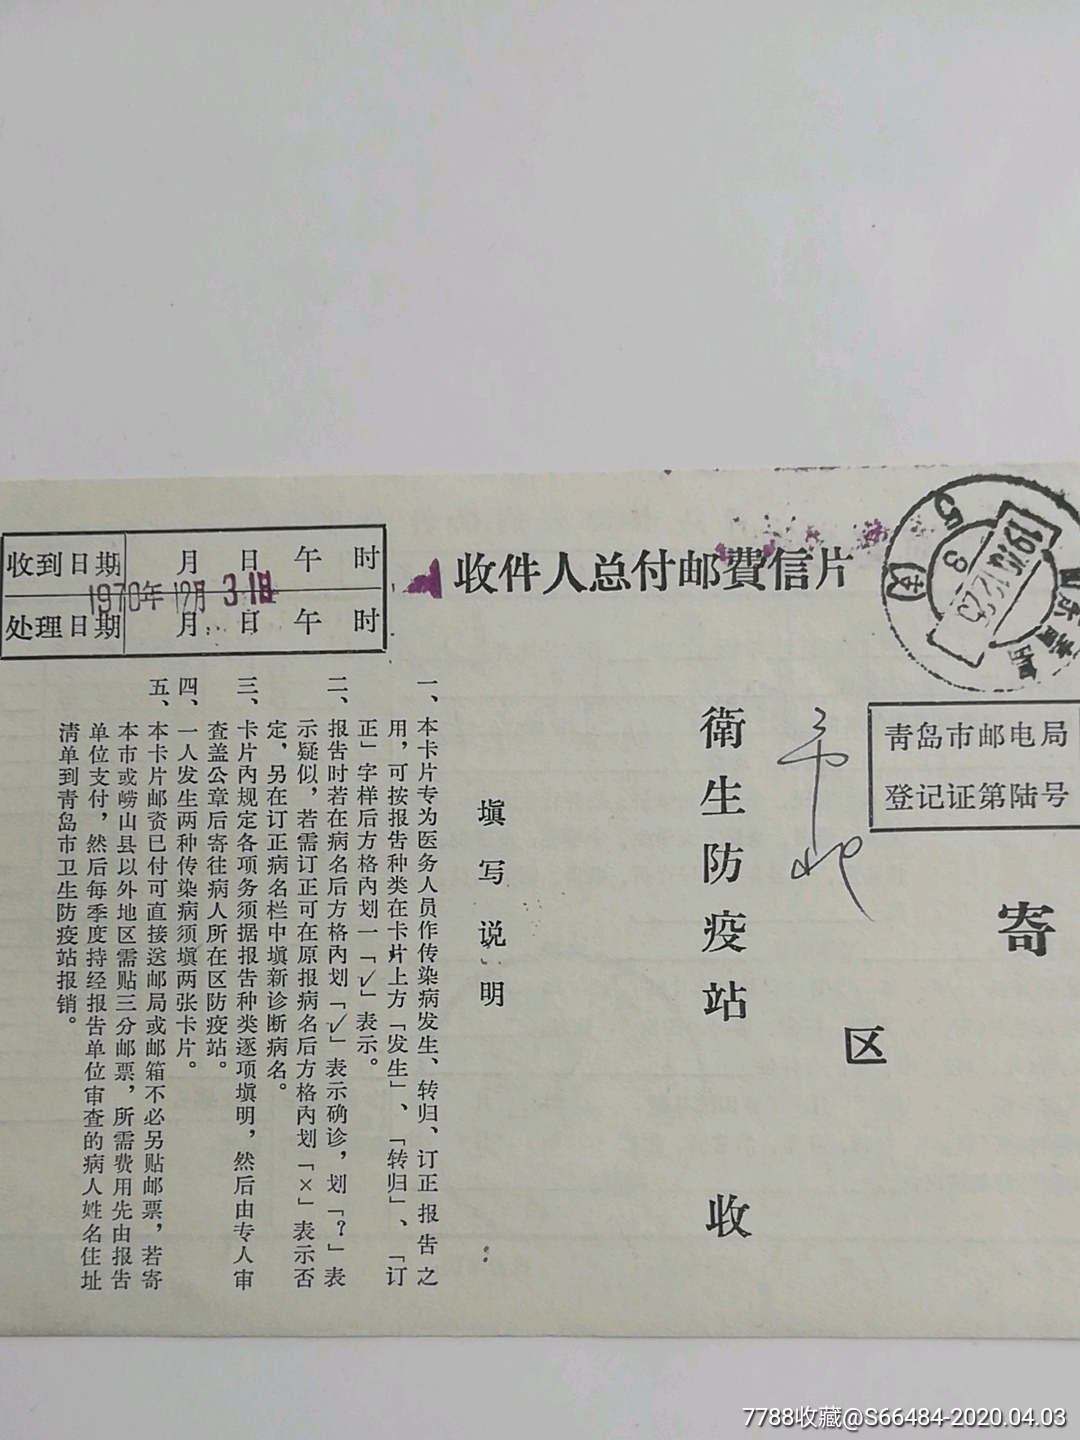 收件人总付邮費信片
收到日期 月 日 午 时
1970年12月31日
处理日期 月 日 午 时
1970.12.
青岛市邮电局
登记证第陆号
寄
区
市北
衛生防疫站 收
填写说明
一、本卡片专为医务人员作传染病发生、转归、订正报告之
用，可按报告种类在卡片上方「发生」、「转归」、「订
正」字样后方格內划一「√」表示。
二、报告时若在病名后方格內划「√」表示确诊，划「？」表
示疑似，若需订正可在原报病名后方格內划「×」表示否
定，另在订正病名栏中填新诊断病名。
三、卡片內规定各项务须据报告种类逐项填明，然后由专人审
查盖公章后寄往病人所在区防疫站。
四、一人发生两种传染病须填两张卡片。
五、本卡片邮资已付可直接送邮局或邮箱不必另贴邮票，若寄
本市或崂山县以外地区需贴三分邮票，所需费用先由报告
单位支付，然后每季度持经报告单位审查的病人姓名住址
清单到青岛市卫生防疫站报销。
7788收藏@S66484-2020.04.03